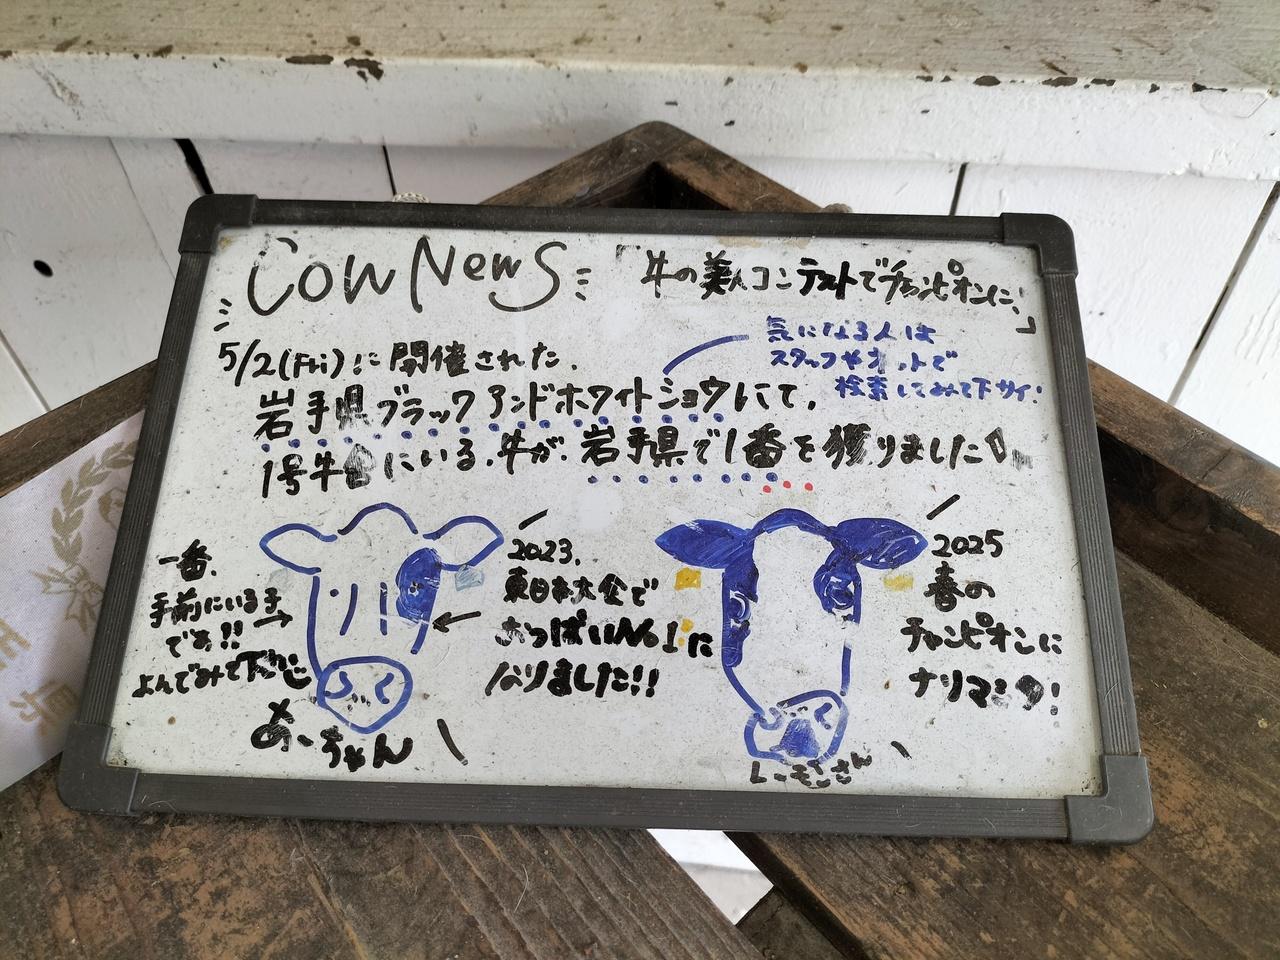 Cow News
「牛の美人コンテストでチャンピオンに!」
気になる人は
スタッフやネットで
検索してみて下サイ!
5/2(Fri)に開催された、
岩手県ブラックアンドホワイトショウにて、
1号牛舎にいる、牛が、岩手県で1番を獲りました
一番、
手前にいる子
です!!
よんでみて下さい
あーちゃん
2023、
東日本大会で
おっぱいNo.1に
なりました!!
2025
春の
チャンピオンに
ナリマシタ!
さん